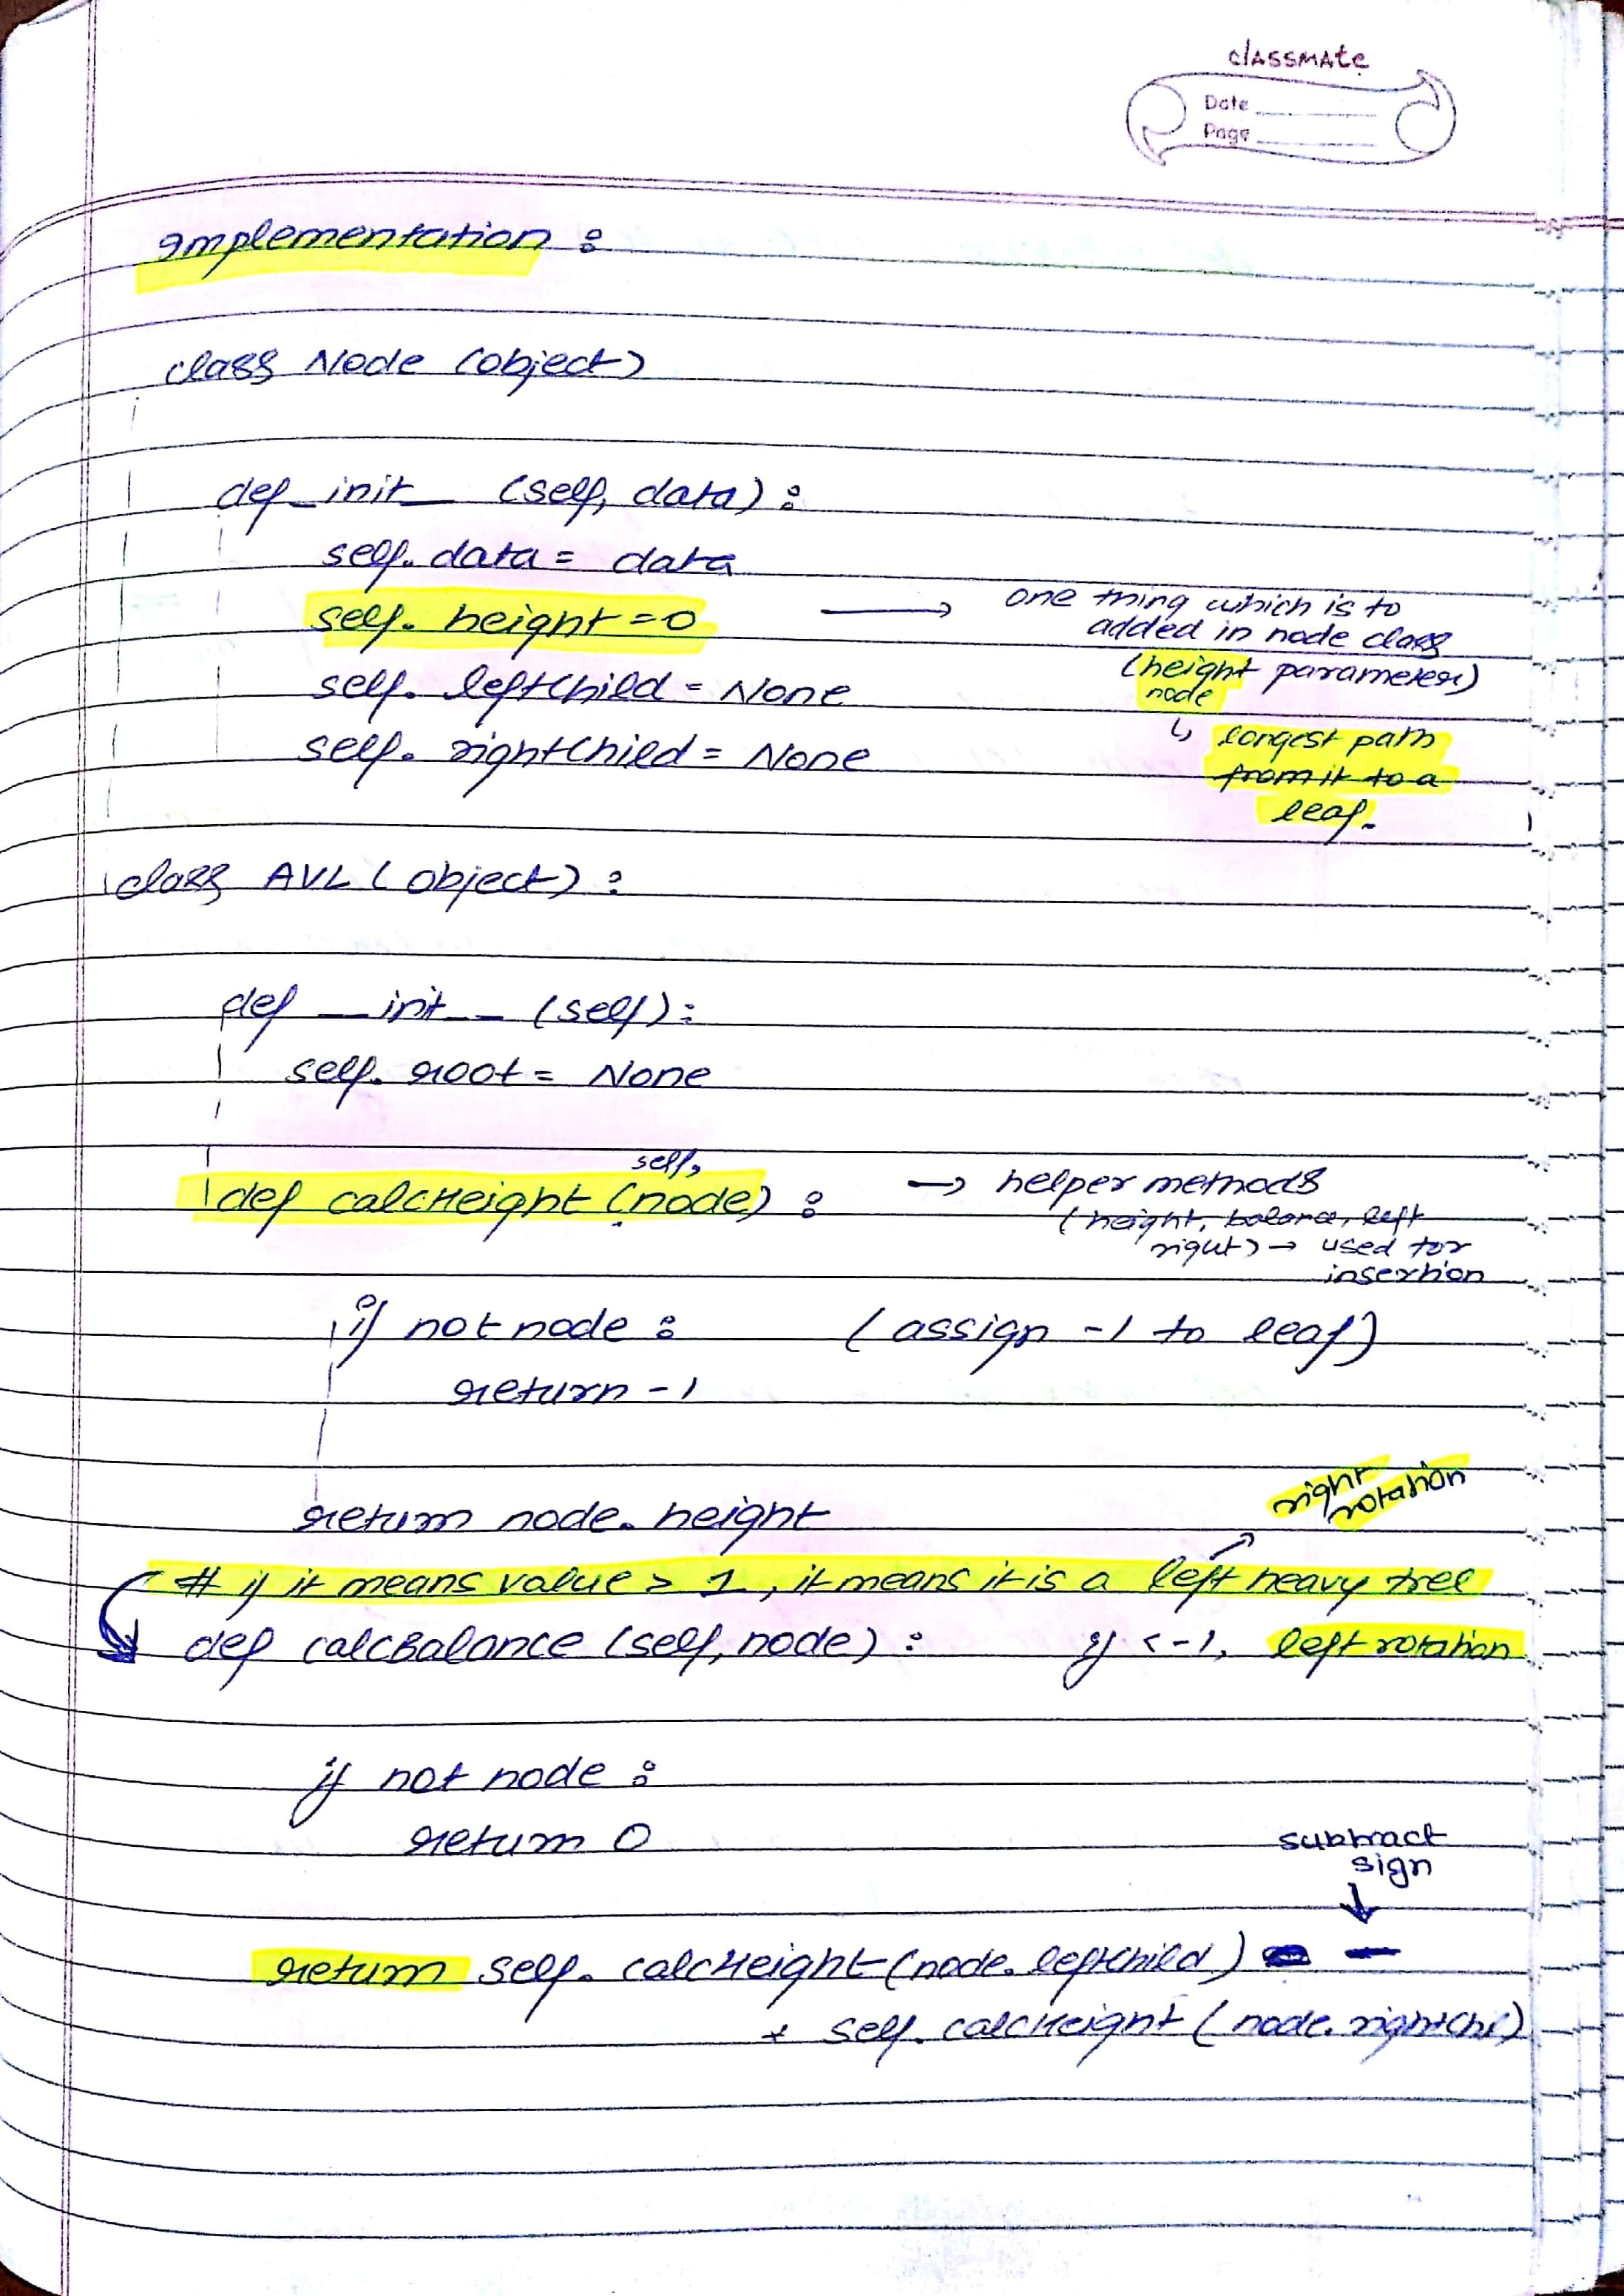 classmate
Date
Page
Implementation :
class Node (object)
def _init_ (self, data) :
self. data = data
self. height = 0 → one thing which is to
added in node class
(height parameter)
node
↳ longest path
from it to a
leaf.
self. leftchild = None
self. rightchild = None
class AVL (object) :
def __init__ (self) :
self. root = None
self,
def calcHeight (node) : → helper methods
(height, balance, left
right) → used for
insertion
if not node : (assign -1 to leaf)
return -1
return node. height
right
rotation
# if it means value > 1, it means it is a left heavy tree
def calcBalance (self, node) : if < -1, left rotation
if not node :
return 0
subtract
sign
↓
return self. calcHeight (node. leftchild) -
+ self. calcHeight (node. rightchi)